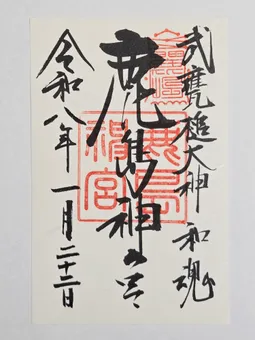 武甕槌大神 和魂
鹿島神宮
鹿島神宮
令和八年一月二十三日